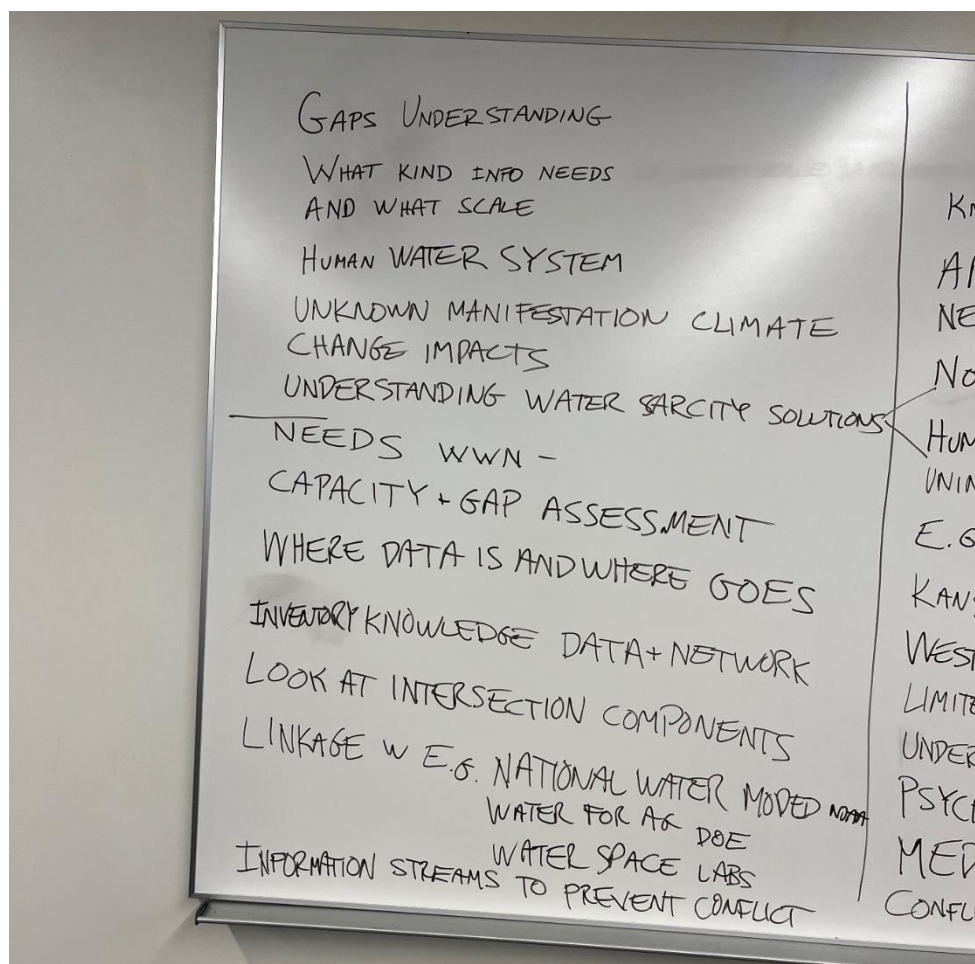 GAPS UNDERSTANDING
WHAT KIND INFO NEEDS
AND WHAT SCALE
HUMAN WATER SYSTEM
UNKNOWN MANIFESTATION CLIMATE
CHANGE IMPACTS
UNDERSTANDING WATER SARCITY SOLUTIONS
NEEDS WWN -
CAPACITY + GAP ASSESSMENT
WHERE DATA IS AND WHERE GOES
INVENTORY KNOWLEDGE DATA + NETWORK
LOOK AT INTERSECTION COMPONENTS
LINKAGE W E.G. NATIONAL WATER MODED
WATER FOR AG DOE
WATER SPACE LABS
INFORMATION STREAMS TO PREVENT CONFLICT
KN
NE
NO
HUM
UNIN
E.G
KAN
WEST
LIMITE
UNDER
PSYC
MED
CONFL